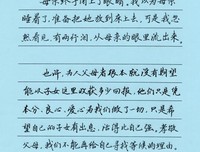 母亲终于闭上了眼睛。我以为母亲
睡着了,准备把她放到床上去,可是我忽
然看见,有两行泪,从母亲的眼里流出来。
也许,为人父母者根本就没有期望
能从子女这里收获多少回报,他们只是凭
本分、良心、爱心为我们做了一切,只是希
望自己的子女有出息,活得比自己强。孝敬
父母,我们不能再给自己寻找等候的理由。